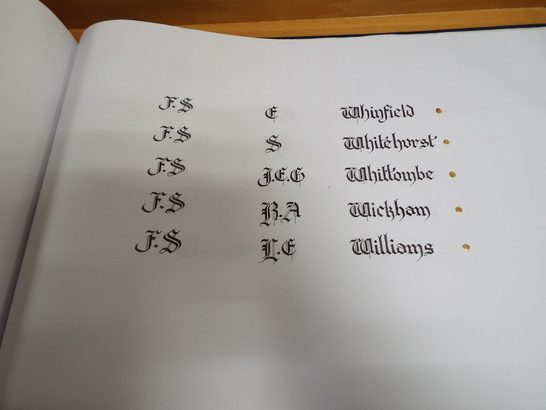 F.S E Whinfield
F.S S Whitehorst
F.S J.E.G Whittombe
F.S R.A Wickham
F.S L.E Williams